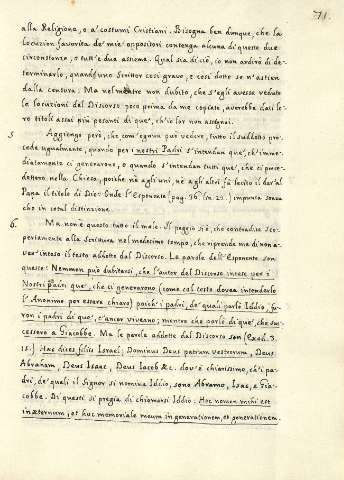 71.
alla Religione, o a' costumi Cristiani. Bisogna ben dunque, che la
locuzion favorita de' miei opposition contenga alcuna di queste due
circonstanze, o tutt'e due assieme. Qual sia di ciò, io non ardirò di de-
terminarlo, quand'uno Scrittor così grave, e così dotto se n'astien
dalla censura. Ma nel mentre non dubito, che s'egli avesse veduto
le locuzioni del Discorso poco prima da me copiate, averebbe dati lo-
ro titoli assai più pesanti di que', ch'io lor non assegnai.
5 Aggiungo però, che com'ognun può vedere, tutto il suddetto pro-
cede ugualmente, quando per i nostri Padri s'intendan que', ch'imme-
diatamente ci generarono, o quando s'intendan tutti que', che ci prece-
dettero nella Chiesa, poichè nè agli uni, nè agli altri fà lecito il dar'al
Papa il titolo di Dio. Onde l'Esponente (pag. 36. lin. 22.) imprunta senza
che in total distinzione.
6. Ma non è questo tutto il male. Il peggio si è, che contradice sco-
pertamente alla Scrittura nel medesimo tempo, che riprende me di non a-
ver'inteso il testo addotto dal Discorso. Le parole dell'Esponente son
queste: Nemmen può dubitarsi, che l'autor del Discorso intese per i
Nostri Padri que', che ci generarono (come col testo dovea intenderlo
l'Anonimo per essere chiaro) poichè i padri, de' quali parlò Iddio, fu-
ron i padri di que', ch'ancor viveano; mentre che parlò di que', che suc-
cessero a Giacobbe. Ma le parole addotte dal Discorso son (Exod. 3.
15.) Hæc dices filiis Israel: Dominus Deus patrum vestrorum, Deus
Abraham, Deus Isaac, Deus Iacob &c. dov'è chiarissimo, ch'i pa-
dri, de' quali il Signor si nomina Iddio, sono Abramo, Isac, e Gia-
cobbe. Di questi si pregia di chiamarsi Iddio: Hoc nomen mihi est
in æternum, et hoc memoriale meum in generationem, et generationem.